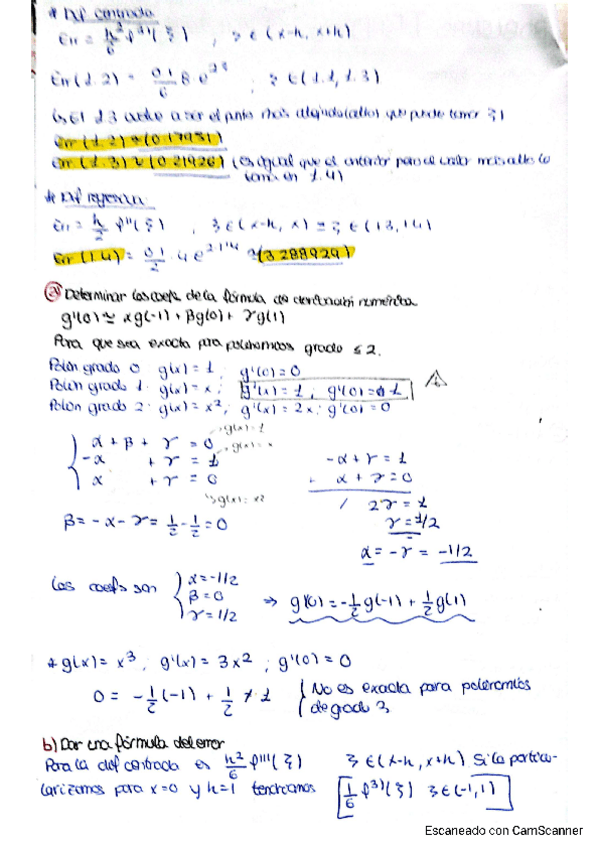 * Dif centrada
Err = h²/6 f³⁾(ξ) , ξ ∈ (x-h, x+h)
Err(1.2) = 0'1/6 8·e^2'6 ; ξ ∈ (1.1, 1.3)
1.3 vuelve a ser el punto más alejado (alto) que puede tomar ξ)
Err(1.2) ≈ (0.17951)
Err(1.3) ≈ (0.21926) (es igual que el anterior pero el valor más alto lo
toma en 1.4)
* Dif regresiva
Err = h/2 f''(ξ) , ξ ∈ (x-h, x) = ξ ∈ (1'3, 1'4)
Err(1.4) = 0'1/2 · 4e^2·1'4 ≈ (3.288929)
a) Determinar los coefs de la fórmula de derivación numérica
g'(0) ≃ αg(-1) + βg(0) + γg(1)
Para que sea exacta para polinomios grado ≤ 2.
Polin grado 0 g(x) = 1 ; g'(0) = 0
Polin grado 1 · g(x) = x ; g'(x) = 1 ; g'(0) = 1
Polin grado 2 · g(x) = x², g'(x) = 2x ; g'(0) = 0
α + β + γ = 0 → g(x) = 1
-α + γ = 1 → g(x) = x
α + γ = 0 → g(x) = x²
-α + γ = 1
+ α + γ = 0
/ 2γ = 1
γ = 1/2
α = -γ = -1/2
β = -α - γ = 1/2 - 1/2 = 0
Los coefs son { α = -1/2
β = 0
γ = 1/2
⇒ g'(0) = -1/2 g(-1) + 1/2 g(1)
* g(x) = x³ ; g'(x) = 3x² ; g'(0) = 0
0 = -1/2 (-1) + 1/2 ≠ 1 { No es exacta para polinomios
de grado 3
b) Dar una fórmula del error
Para la dif centrada es h²/6 f'''(ξ) ξ ∈ (x-h, x+h) Si la particu-
larizamos para x=0 y h=1 tendríamos [1/6 f³⁾(ξ) ξ ∈ (-1,1)]
Escaneado con CamScanner